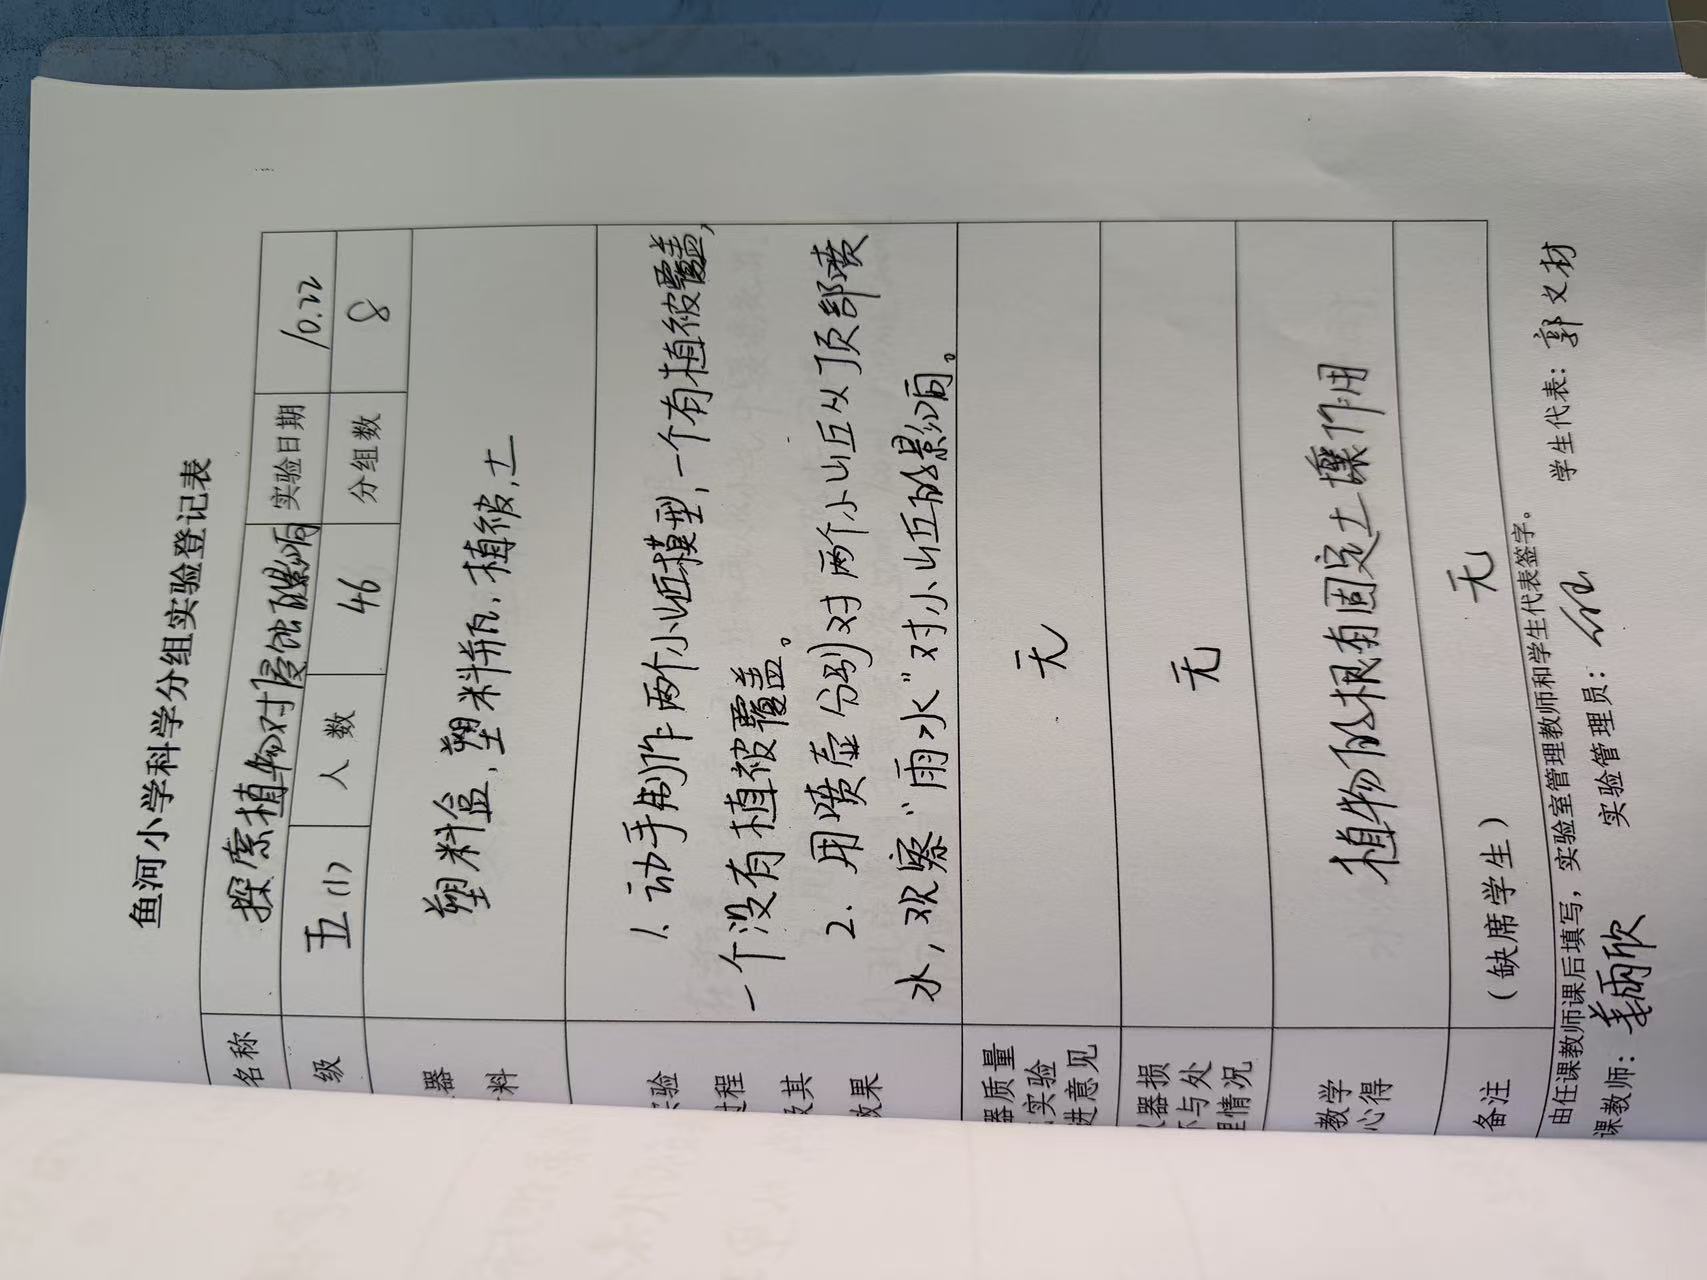 鱼河小学科学分组实验登记表
名称 探索植物对侵蚀的影响 实验日期 10.22
级 五(1) 人数 46 分组数 8
器
料
塑料盒、塑料瓶、植被、土
验
过程
及其
效果
1. 动手制作两个小山丘模型,一个有植被覆盖,
一个没有植被覆盖。
2. 用喷壶分别对两个小山丘从顶部喷
水,观察“雨水”对小山丘的影响。
器质量
实验
进意见
无
器损
坏与处
理情况
无
教学
心得
植物的根有固定土壤作用
备注 (缺席学生) 无
由任课教师课后填写,实验室管理教师和学生代表签字。
课教师: 姜雨欣 实验管理员: 学生代表: 郭文材